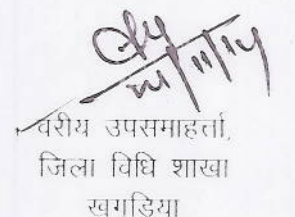 वरीय उपसमाहर्त्ता,
जिला विधि शाखा
खगड़िया